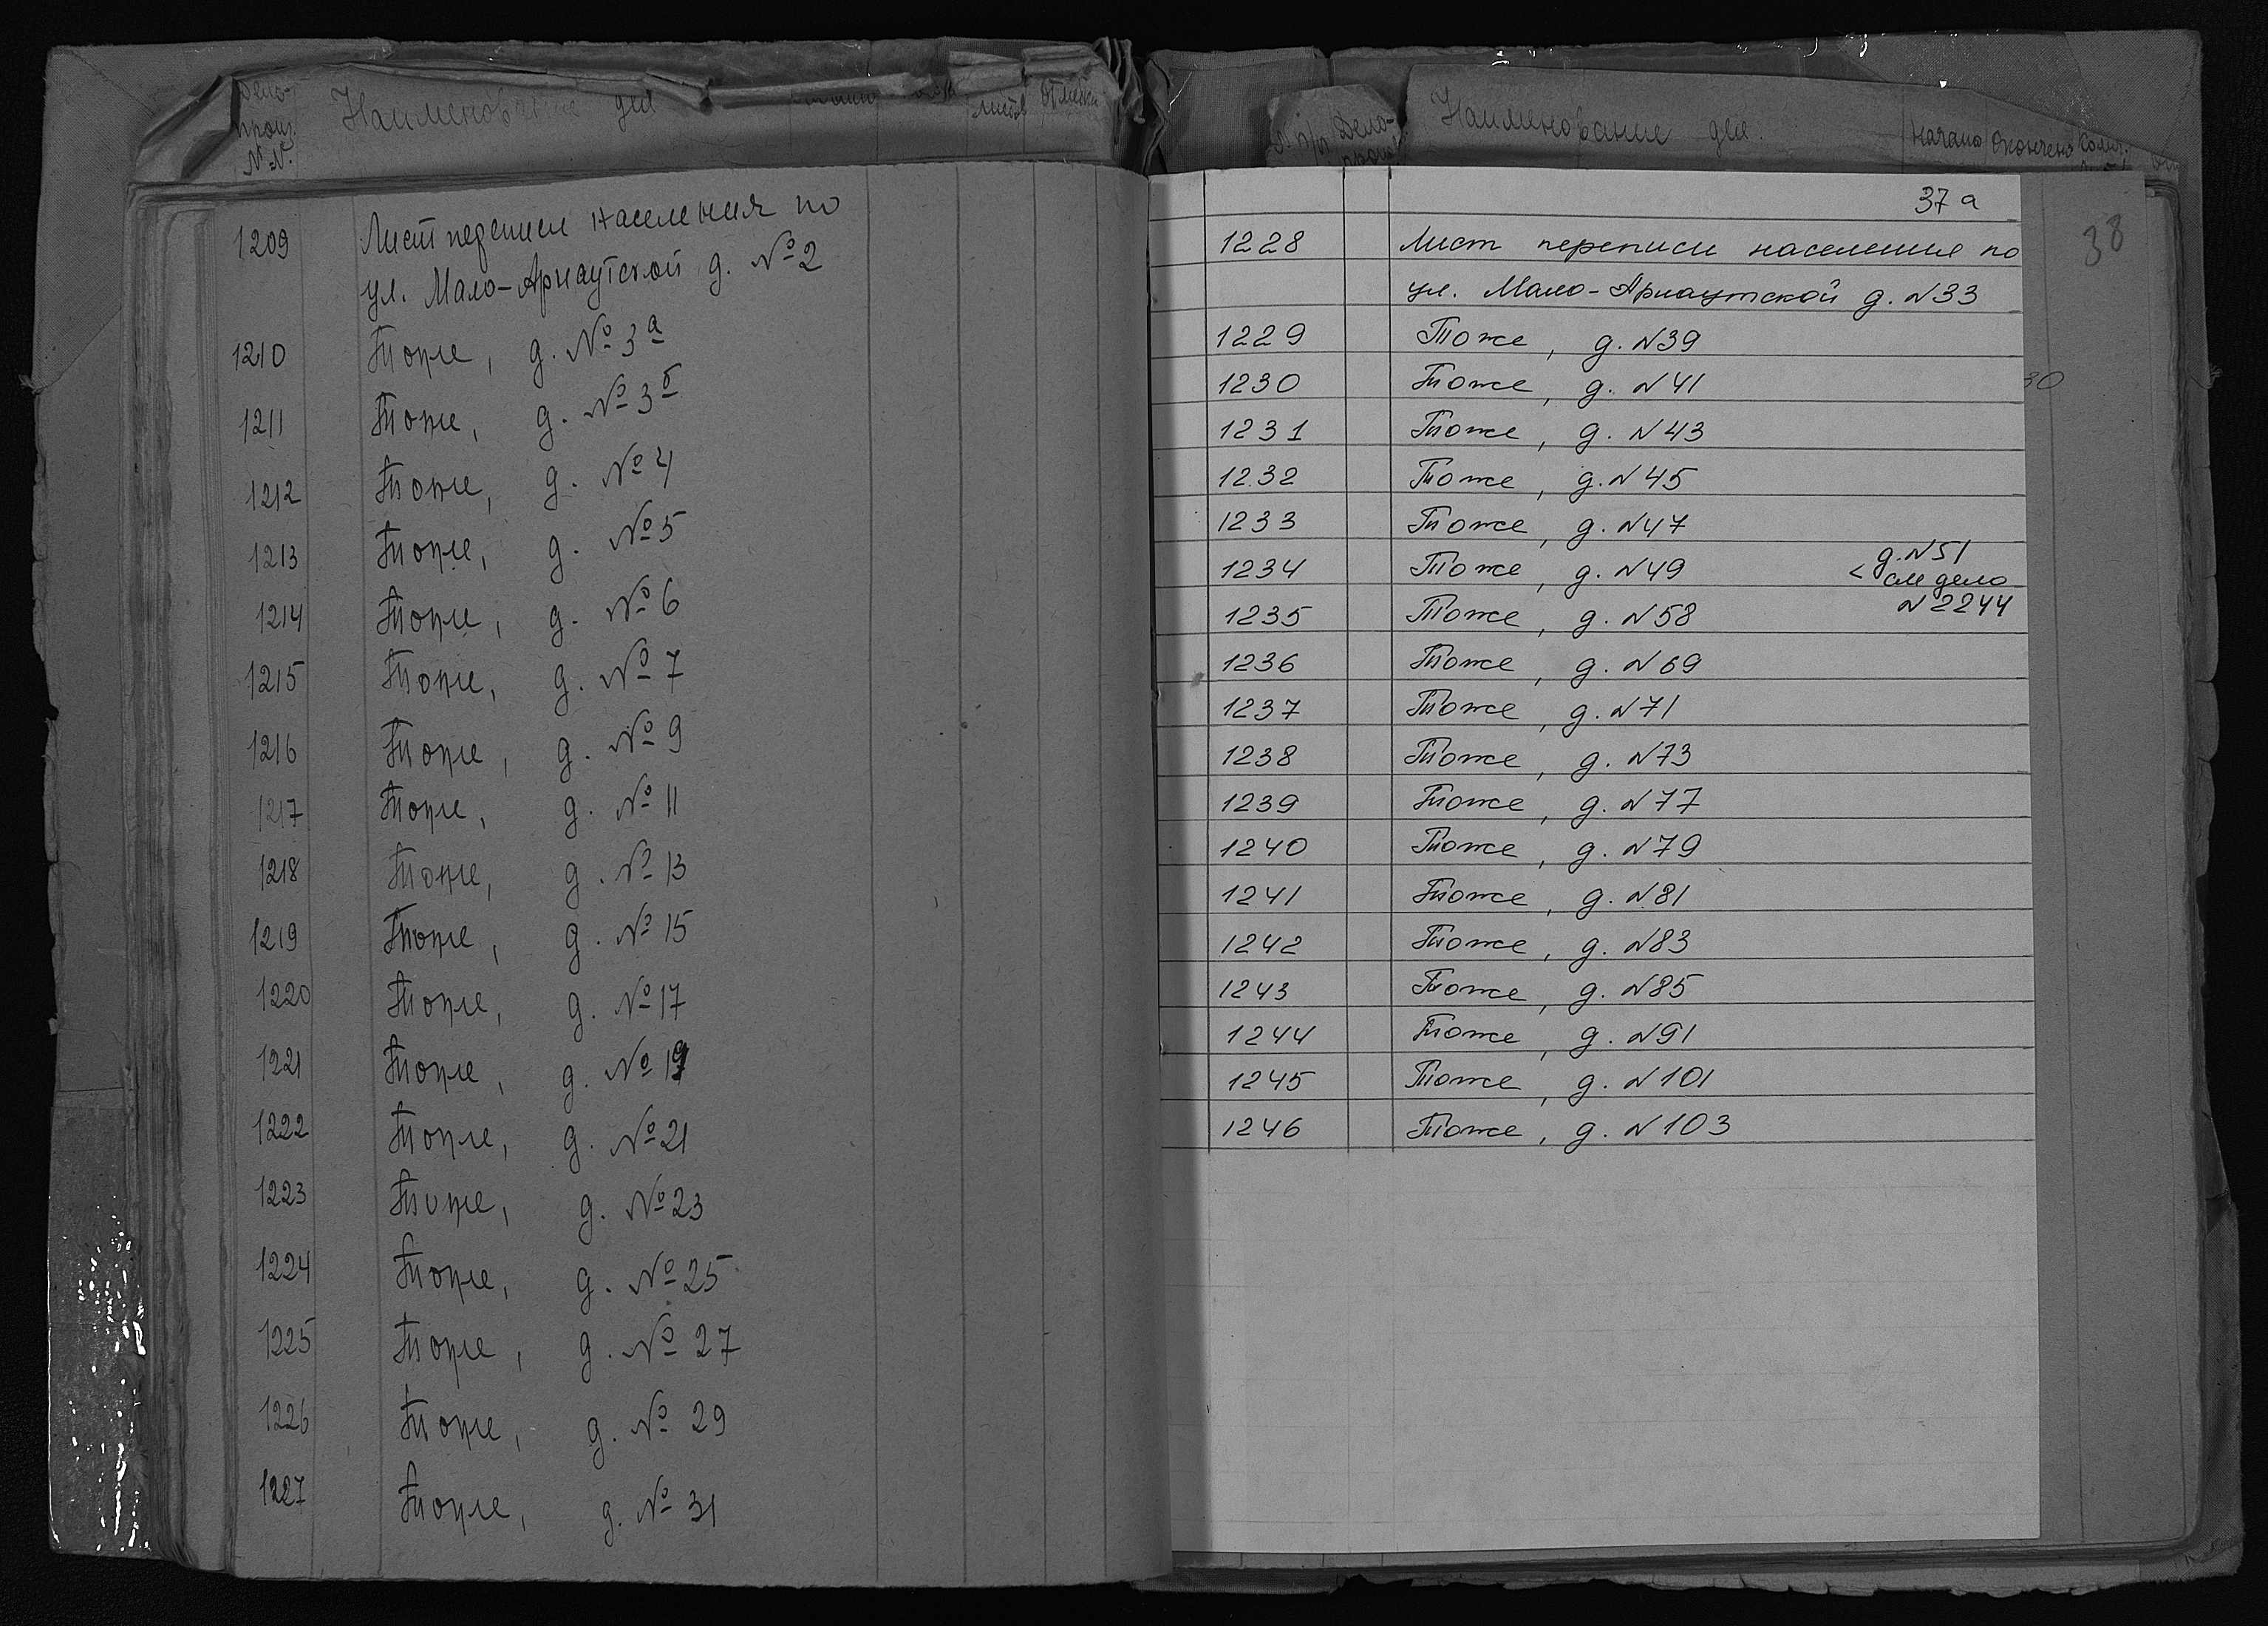 Дело-
произ.
№№.
Наименование дел
листов
Отметки
1209 Лист переписи населения по
ул. Мало-Арнаутской д. №2
1210 Тоже, д. №3а
1211 Тоже, д. №3б
1212 Тоже, д. №4
1213 Тоже, д. №5
1214 Тоже, д. №6
1215 Тоже, д. №7
1216 Тоже, д. №9
1217 Тоже, д. №11
1218 Тоже, д. №13
1219 Тоже, д. №15
1220 Тоже, д. №17
1221 Тоже, д. №19
1222 Тоже, д. №21
1223 Тоже, д. №23
1224 Тоже, д. №25
1225 Тоже, д. №27
1226 Тоже, д. №29
1227 Тоже, д. №31
п/п Дело-
произ
Наименование дел.
Начало Окончено Колич.
37а
38
1228 Лист переписи населения по
ул. Мало-Арнаутской д. N33
1229 Тоже, д. N39
1230 Тоже, д. N41
30
1231 Тоже, д. N43
1232 Тоже, д. N45
1233 Тоже, д. N47
1234 Тоже, д. N49 < д. N51
см дело
N2244
1235 Тоже, д. N58
1236 Тоже, д. N69
1237 Тоже, д. N71
1238 Тоже, д. N73
1239 Тоже, д. N77
1240 Тоже, д. N79
1241 Тоже, д. N81
1242 Тоже, д. N83
1243 Тоже, д. N85
1244 Тоже, д. N91
1245 Тоже, д. N101
1246 Тоже, д. N103